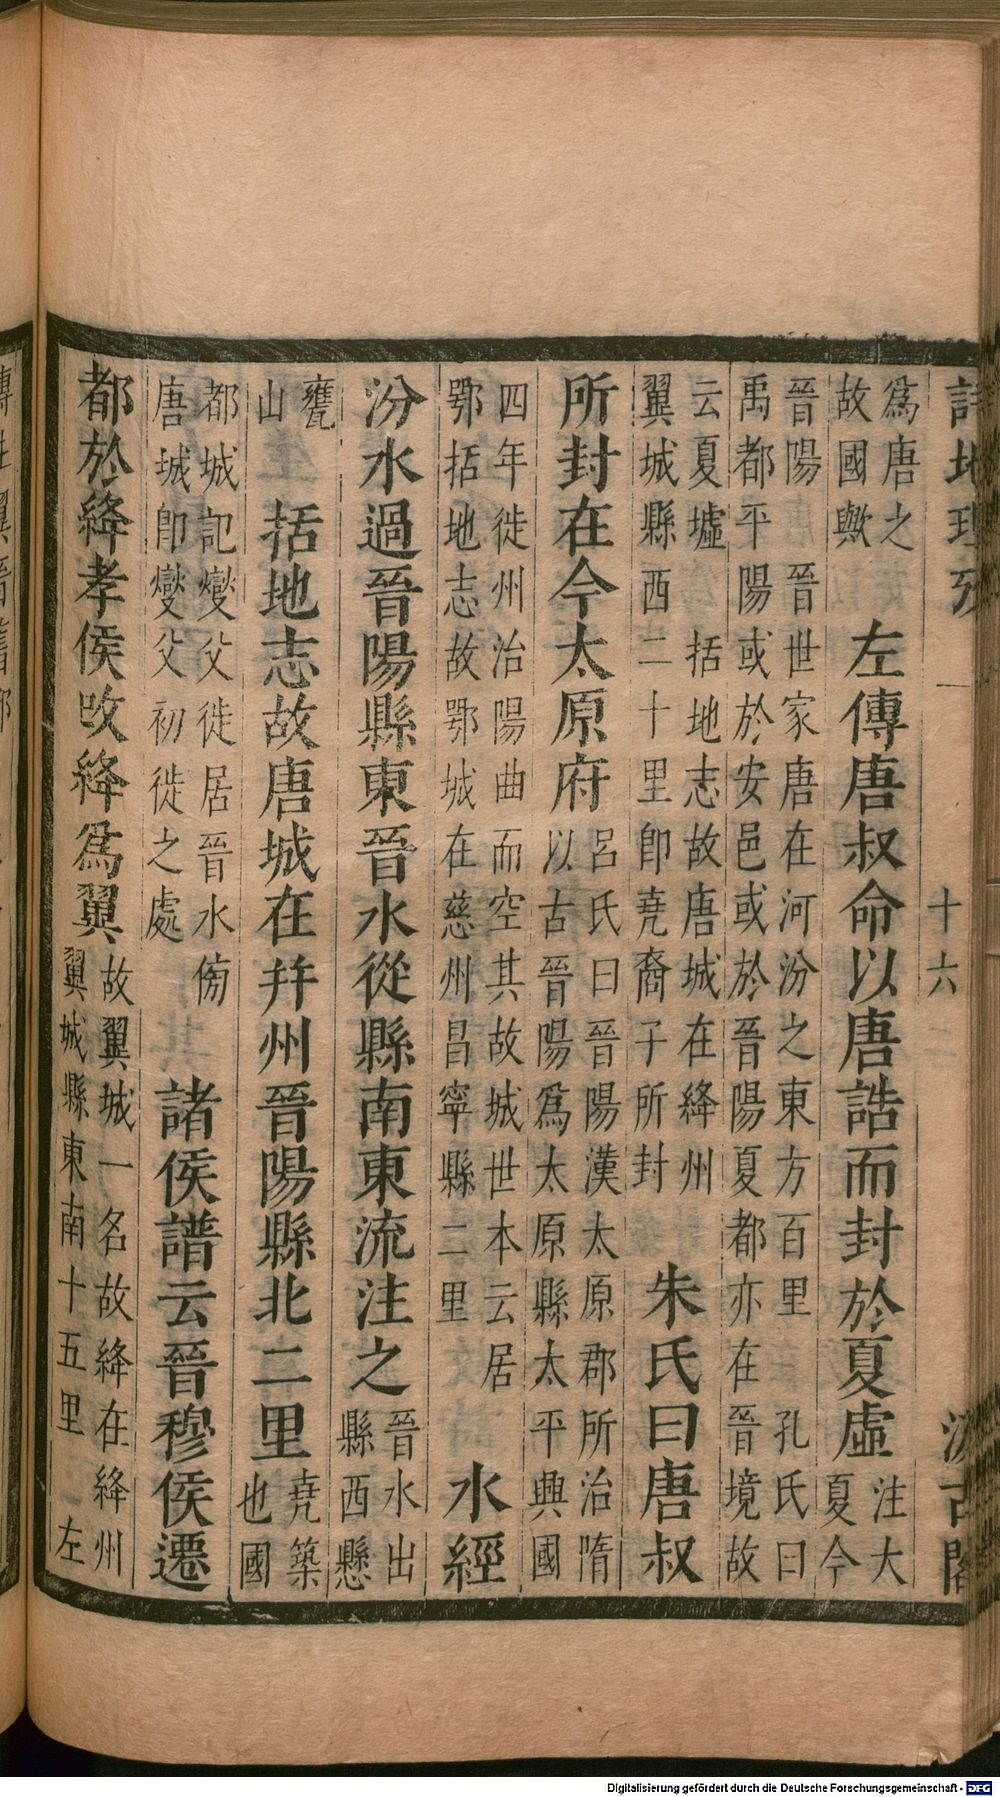 詩地理攷 一 十六 汲古閣
爲唐之故國歟 左傳唐叔命以唐誥而封於夏虛注大夏今
晉陽 晉世家唐在河汾之東方百里 孔氏曰禹都平陽或於安邑或於晉陽夏都亦在晉境故
云夏墟 括地志故唐城在絳州翼城縣西二十里卽堯裔子所封 朱氏曰唐叔
所封在今太原府呂氏曰晉陽漢太原郡所治隋以古晉陽爲太原縣太平興國
四年徙州治陽曲而空其故城世本云居鄂括地志故鄂城在慈州昌寧縣二里 水經
汾水過晉陽縣東晉水從縣南東流注之晉水出縣西懸
甕山 括地志故唐城在幷州晉陽縣北二里堯築也國
都城記燮父徙居晉水傍唐城卽燮父初徙之處 諸侯譜云晉穆侯遷
都於絳孝侯改絳爲翼故翼城一名故絳在絳州翼城縣東南十五里 左
Digitalisierung gefördert durch die Deutsche Forschungsgemeinschaft - DFG